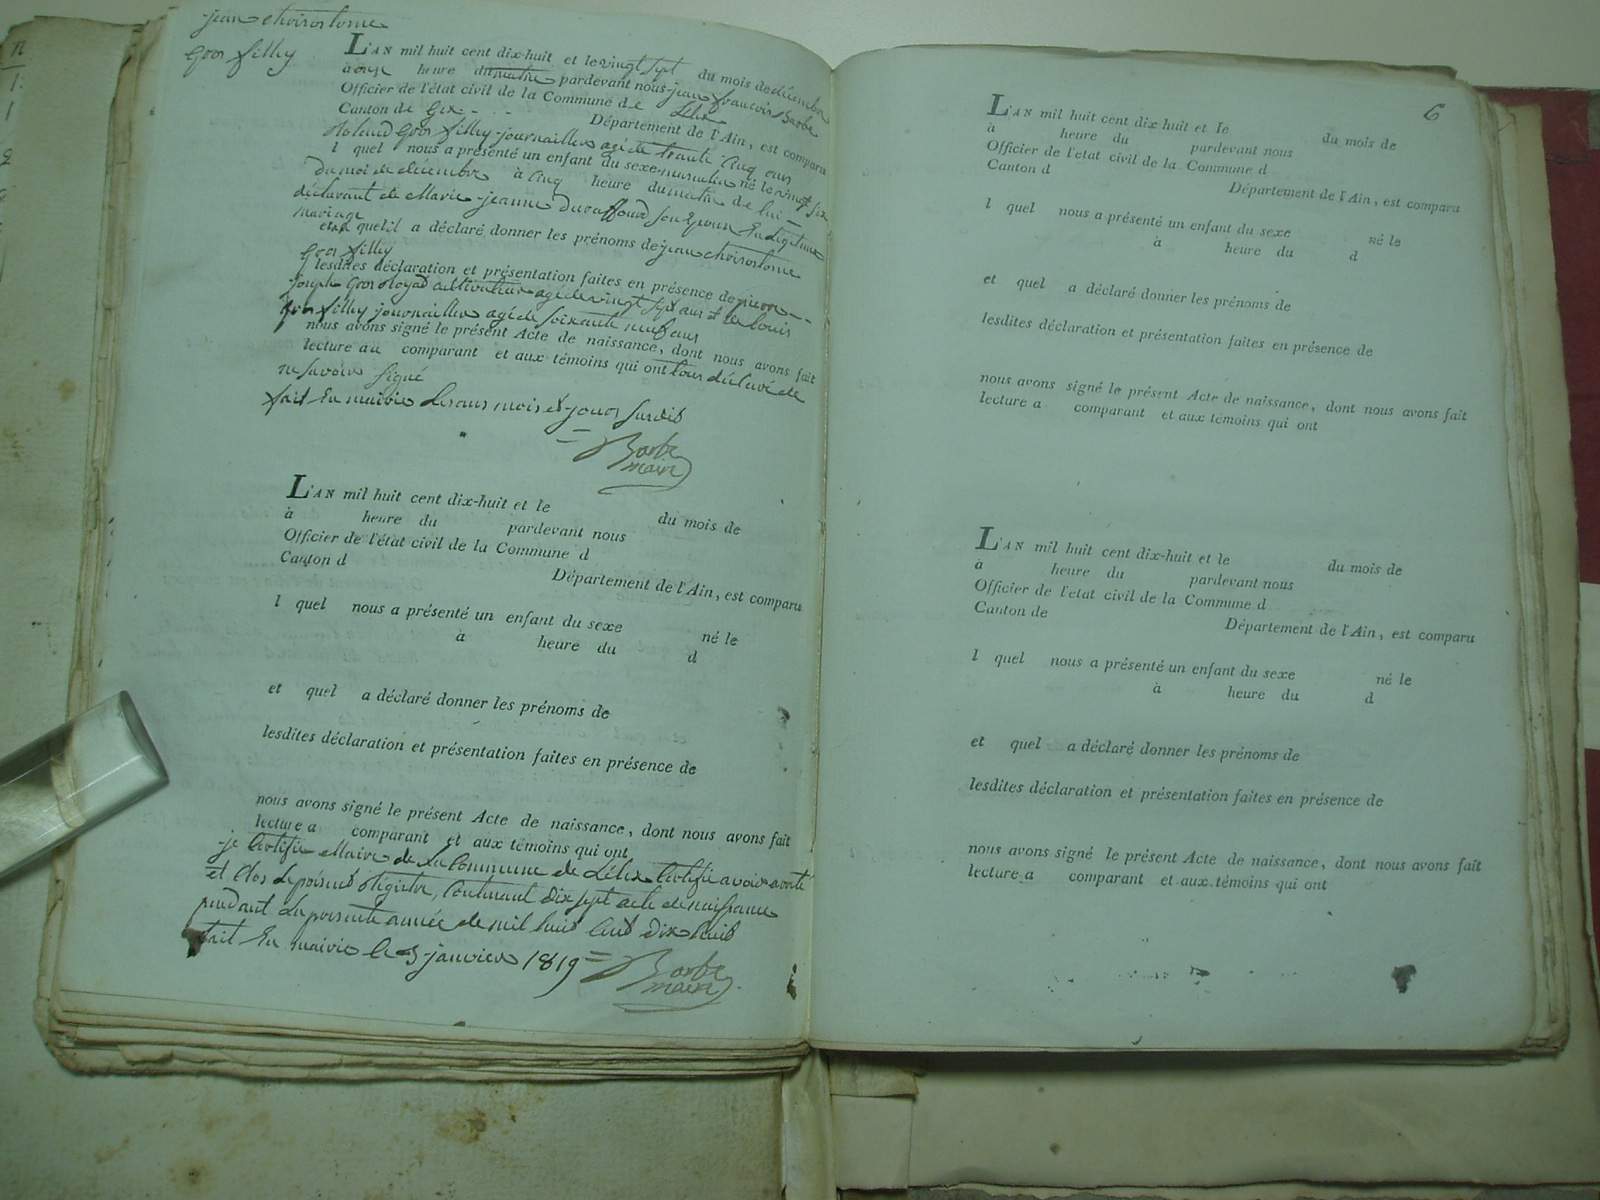 jean chrisostome
Gros filley
L'AN mil huit cent dix-huit et le vingt sept du mois de décembre
à onze heure du matin pardevant nous jean françois Barbe
Officier de l'état civil de la Commune de Lélex
Canton de Gex Département de l'Ain, est comparu
Roland Gros filley journaillier agé de trante cinq ans
l quel nous a présenté un enfant du sexe masculin né le vingt six
du moi de décembre à cinq heure du matin de lui
déclarant de Marie jeanne Duraffourd son epouse En légitime
mariage
et quel il a déclaré donner les prénoms de jean chrisostome
Gros filley
lesdites déclaration et présentation faites en présence de pierre
joseph Gros cultivateur agé de vingt sept ans et de louis
Gros filley journaillier agé de soixante neuf ans
nous avons signé le présent Acte de naissance, dont nous avons fait
lecture au comparant et aux témoins qui ont tous déclaré de
ne savoir signé
fait En mairie les ans mois et jours susdit
Barbe
maire
L'AN mil huit cent dix-huit et le du mois de
à heure du pardevant nous
Officier de l'état civil de la Commune d
Canton d
Département de l'Ain, est comparu
l quel nous a présenté un enfant du sexe né le
à heure du d
et quel a déclaré donner les prénoms de
lesdites déclaration et présentation faites en présence de
nous avons signé le présent Acte de naissance, dont nous avons fait
lecture a comparant et aux témoins qui ont
je Certifie Maire de la Commune de Lélex Certifie avoir arrêté
et Clos le présent Registre, Contenant dix sept acte de naissance
pendant la présente année de mil huit Cent dix huit
fait En mairie le 3 janvier 1819
Barbe
maire
6
L'AN mil huit cent dix-huit et le du mois de
à heure du pardevant nous
Officier de l'etat civil de la Commune d
Canton d
Département de l'Ain, est comparu
l quel nous a présenté un enfant du sexe né le
à heure du d
et quel a déclaré donner les prénoms de
lesdites déclaration et présentation faites en présence de
nous avons signé le présent Acte de naissance, dont nous avons fait
lecture a comparant et aux témoins qui ont
L'AN mil huit cent dix-huit et le du mois de
à heure du pardevant nous
Officier de l'etat civil de la Commune d
Canton de
Département de l'Ain, est comparu
l quel nous a présenté un enfant du sexe né le
à heure du d
et quel a déclaré donner les prénoms de
lesdites déclaration et présentation faites en présence de
nous avons signé le présent Acte de naissance, dont nous avons fait
lecture a comparant et aux témoins qui ont